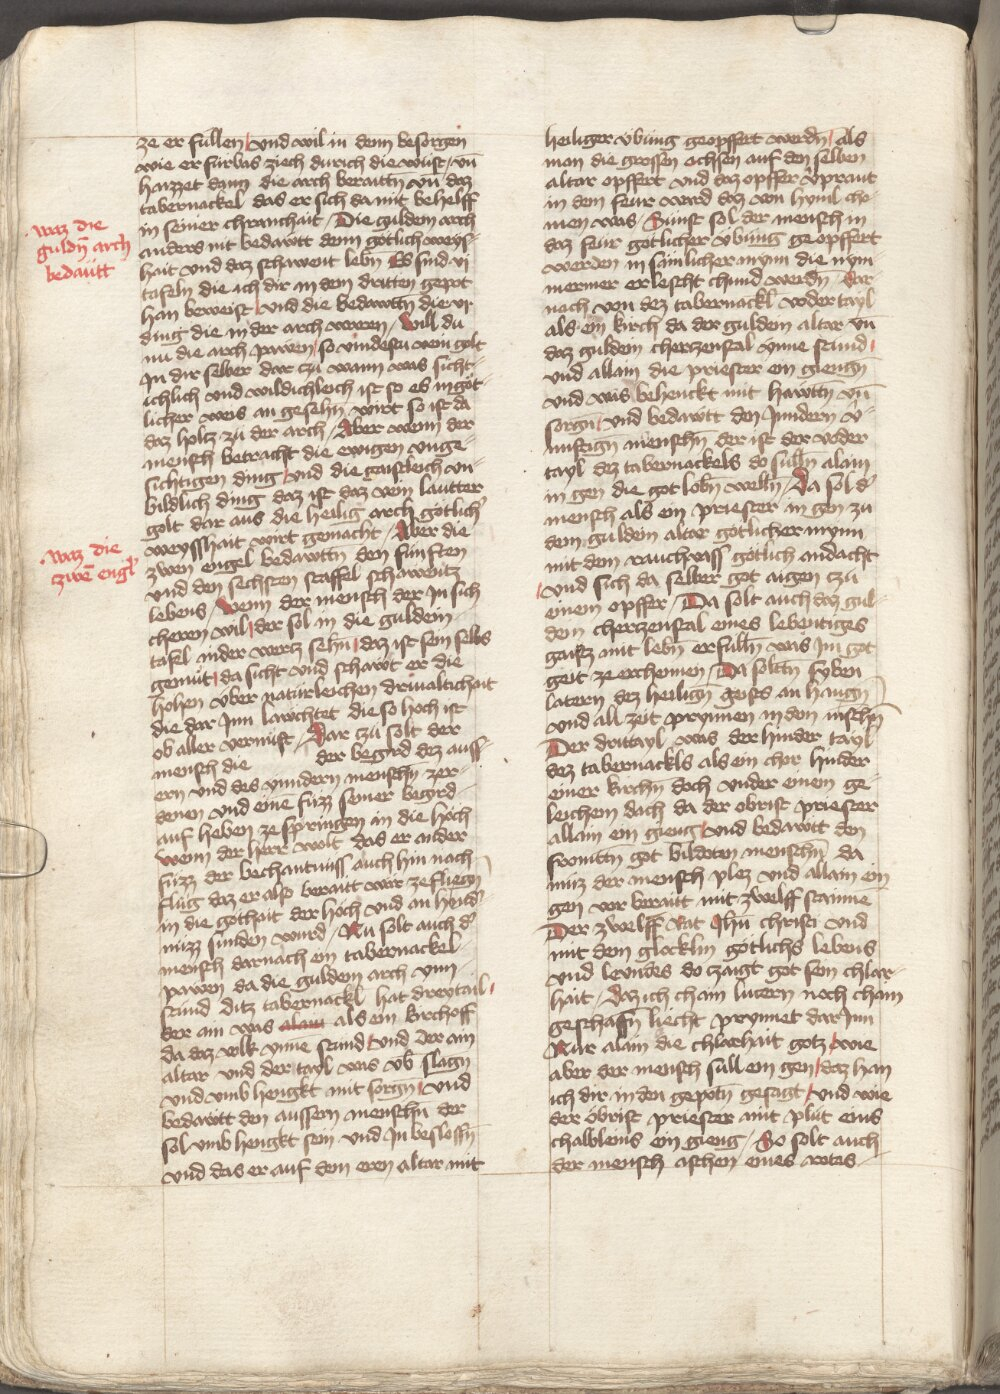 waz die
guldñ arch
bedautt
waz die
zwē engl
ze er fullen / vnd wil in denn besorgen
wie er furbas ziech durich die wust / vñ
haizzet dann die arch beraittñ vñ daz
tabernackel das er sich da mit behelff
in seiner chranchait / Die guldein arch
anders nit bedawtt denn gotlich weys-
hait vnd daz schawent lebñ Es sind vi
tafeln die ich dir in dem dritten gepot
han beweist / vnd die bedawttñ die vi
ding die in der arch weren / Will du
nu die arch pawen / so vindestu wein golt
In dir selber dar czu wann was sicht-
ichlich vnd wildichleich ist so es in got-
licher weis an gesehñ wirt so ist da
daz holtz zu der arch / Aber wenn der
mensch betracht die ewigen vnge-
sichtigen ding / vnd die gaistleich vn-
bildlich ding daz ist daz vein lautter
golt dar aus die heilig arch gotlich
weysshait wirt gemacht / Aber die
zwen engel bedawttñ den funften
vnd den sechsten staffel schawentz
lebens / Wenn der mensch der In sich
cheren wil / der sol in die guldein
tafel nider wertz sehñ / daz ist sein selbs
gemut / da sicht vnd schawt er die
hohen vber naturleichen drivaltichait
die dar Inn lawchtet die so hoch ist
ob aller vernuft / Dar czu solt der
mensch die der begird dez auss-
ern vnd des ynndern menschñ zer-
denen vnd eine fuzz seiner begird-
auf heben ze springen in die hoch
wenn der herr wolt das er ander
fuzz der bechantnuss auch hin nach
flug daz er also beraitt war ze fliegñ
in die gothait der hoch vnd an hind
nuzz funden wurd / Nu solt auch d
mensch darnach ein tabernackel
pawen da die guldein arch vnn
stund ditz tabernackl hat dreytail
der ain was alain als ein kirchoff
da daz volk ynne stund / vnd der ain
altar vnd der tayl was vb slagñ
vnd vmb hengkt mit sorgñ / vnd
bedawtt den aussern menschñ der
sol vmb hengkt sein vnd In beslossñ
vnd das er auf dem eren altar mit
heiliger vbung geopffert werdñ / Als
man die grossen ochsen auf den selben
altar opffert vnd daz opffer vpraut
in dem feur ward daz von hymil cho-
men was / Sunst sol der mensch in
daz feur gotlicher vbung geopffert
werden in samlicher mynn die nym-
mermer erlescht chund werdñ / Dar
nach von dez tabernackl voder tayl
als ein kirch da der guldein altar vñ
daz guldein cherzenstal ynne stund /
vnd allain die priester ein giengñ
vnd was behenckt mit hawttñ vñ
sorgñ / vnd bedawtt den Inndern v-
nuftign menschñ der ist der voder
tayl dez tabernackels do sullñ alain
in gen die got lobñ wellñ / Da sol d
mensch als ein priester in gen zu
dem guldein altar gotlicher mynn
mit dem rauchvass gotlich andacht
vnd sich da selber got aigen czu
einem opffer / Da solt auch daz gul-
dein cherczenstal eines lebentiges
gaistz mit lebñ erfullñ was Im got
geit ze erchennen / Da soltñ syben
latern dez heiligñ geists an hangñ
vnd all zeit prynnen in dem mschñ
Der drittayl was der hinder tayl
dez tabernackls als ein chor hinder
einer kirchñ doch vnder einem ge-
leichem dach da der obrist priester
allain ein gieng / vnd bedawtt den
fronittñ got bildoten menschñ da
muz der mensch ylez vnd allain ein
gen vor berautt mit zwelff staimē
Der zwelff Rat Jhū christi vnd
mit dem glocklin gotlichs lebens
vnd leundes do czaigt got sein chlar-
hait / Daz ich chain lucern noch chain
geschaffñ liecht prynnet dar Inn
Nur alain die chlarhait gotz / wie
aber der mensch sull ein gen / daz han
ich dir in den gepotñ gesagt / vnd wie
der obrist priester mit plut eins
chalbleins ein gieng / So solt auch
der mensch aschen eines rotes